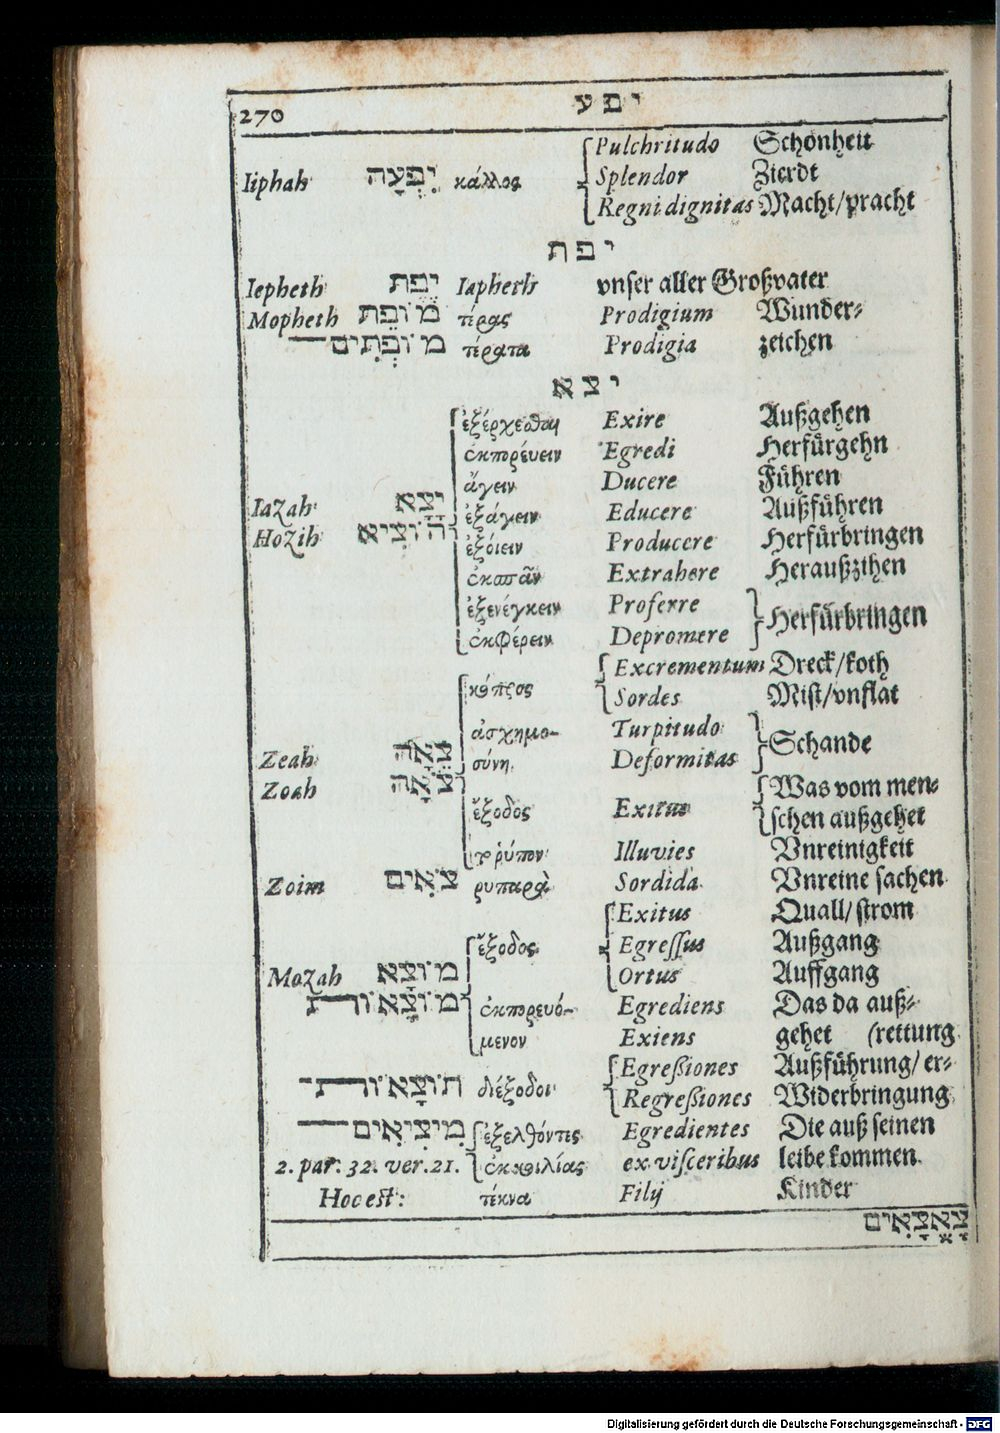 270 יפע
Pulchritudo Schönheit
Iiphah יִפְעָה κάλλος Splendor Zierdt
Regni dignitas Macht/pracht
יפת
Iepheth יֶפֶת Iapheth vnser aller Großvater
Mopheth מוֹפֵת τέρας Prodigium Wunder-
מוֹפְתִים τέρατα Prodigia zeichen
יצא
ἐξέρχεσθαι Exire Außgehen
ἐκπορέυειν Egredi Herfürgehn
ἄγειν Ducere Führen
Iazah יָצָא ἐξάγειν Educere Außführen
Hozih הוֹצִיא ἐξόιειν Producere Herfürbringen
ἐκσπᾶν Extrahere Heraußzihen
ἐξενέγκειν Proferre
ἐκφέρειν Depromere Herfürbringen
Excrementum Dreck/koth
κόπρος Sordes Mist/vnflat
ἀσχημο- Turpitudo
Zeah צֵאָה σύνη Deformitas Schande
Zoah צֹאָה Was vom men-
ἔξοδος Exitus schen außgehet
ῥύπον Illuvies Vnreinigkeit
Zoim צֹאִים ρυπαρὰ Sordida Vnreine sachen
Exitus Quall/strom
ἔξοδος Egressus Außgang
Mozah מוֹצָא Ortus Auffgang
מוֹצָאוֹת ἐκπορευό- Egrediens Das da auß-
μενον Exiens gehet (rettung
Egreßiones Außführung/er-
תוֹצָאוֹת διέξοδοι Regreßiones Widerbringung
מִיצִיאִים ἐξελθόντες Egredientes Die auß seinen
2. par. 32. ver. 21. ἐκ κοιλίας ex visceribus leibe kommen.
Hoc est: τέκνα Filij Kinder
צֶאֱצָאִים
Digitalisierung gefördert durch die Deutsche Forschungsgemeinschaft - DFG